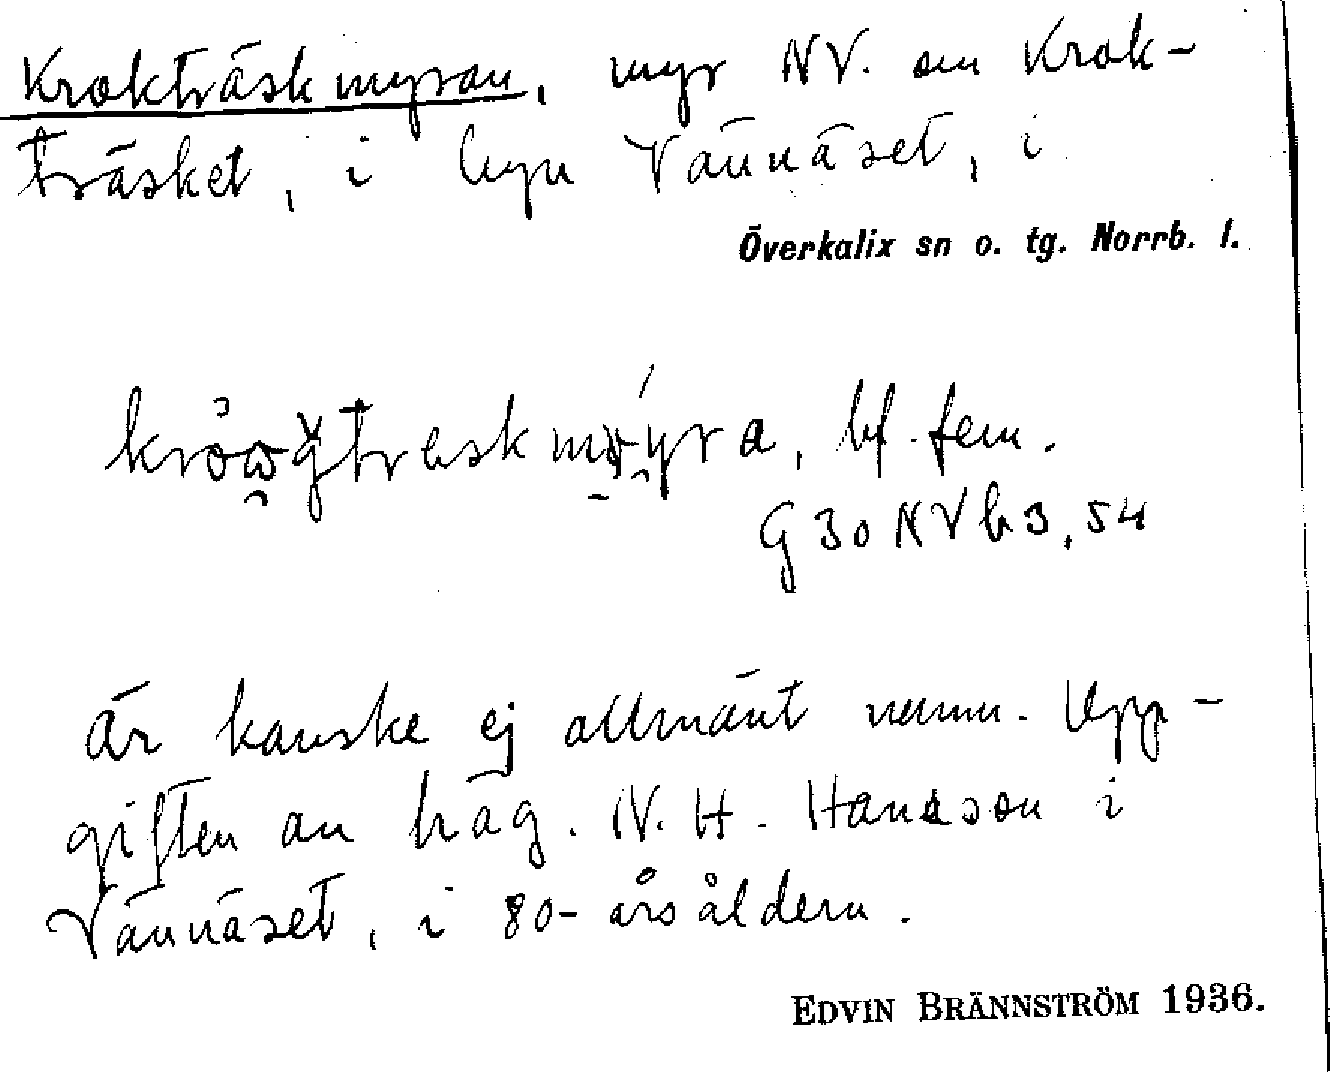 Krokträskmyran, myr NV. om Krok-
träsket, i byn Vännäset, i
Överkalix sn o. tg. Norrb. l.
bf. fem.
G 30 NV b 3, 54
Är kanske ej allmänt namn. Upp-
giften av häg. N. H. Hansson i
Vännäset, i 80-årsåldern.
EDVIN BRÄNNSTRÖM 1936.